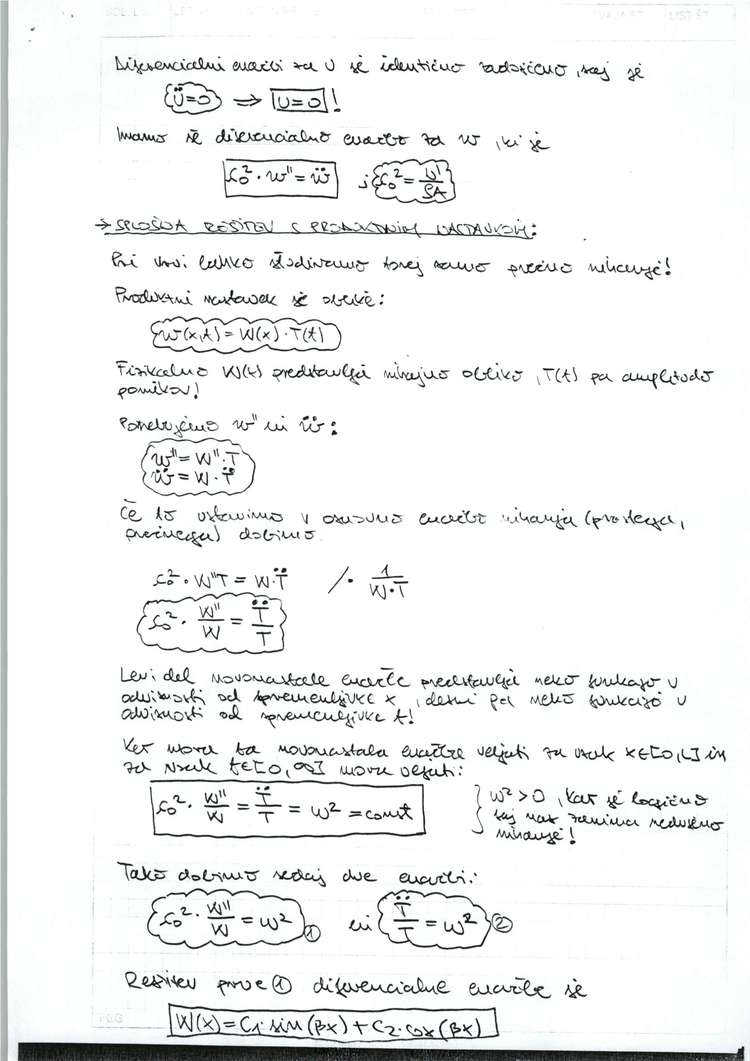 Diferencialni enačbi za U je identično zadoščeno, saj je
Ü=0 ⇒ U=0!
Imamo še diferencialno enačbo za w, ki je
c₀²·w''=ẅ ; c₀²=N/ρA
→ SPLOŠNA REŠITEV S PRODUKTNIM NASTAVKOM:
Pri vrvi lahko študiramo torej samo prečno nihanje!
Produktni nastavek je oblike:
w(x,t)=W(x)·T(t)
Fizikalno W(x) predstavlja nihajno obliko, T(t) pa amplitudo
pomikov!
Potrebujemo w'' in ẅ:
w''=W''·T
ẅ=W·T̈
Če to vstavimo v osnovno enačbo nihanja (prostega,
prečnega) dobimo.
c₀²·W''T=W·T̈ /· 1/W·T
c₀²·W''/W=T̈/T
Levi del novonastale enačbe predstavlja neko funkcijo v
odvisnosti od spremenljivke x, desni pa neko funkcijo v
odvisnosti od spremenljivke t!
Ker mora ta novonastala enačba veljati za vsak x∈[0,L] in
za vsak t∈[0,∞] mora veljati:
c₀²·W''/W=T̈/T=ω²=const
ω²>0, kar je logično
saj nas zanima nedušeno
nihanje!
Tako dobimo sedaj dve enačbi:
c₀²·W''/W=ω² ① in T̈/T=ω² ②
Rešitev prve ① diferencialne enačbe je
W(x)=C₁·sin(βx)+C₂·cos(βx)